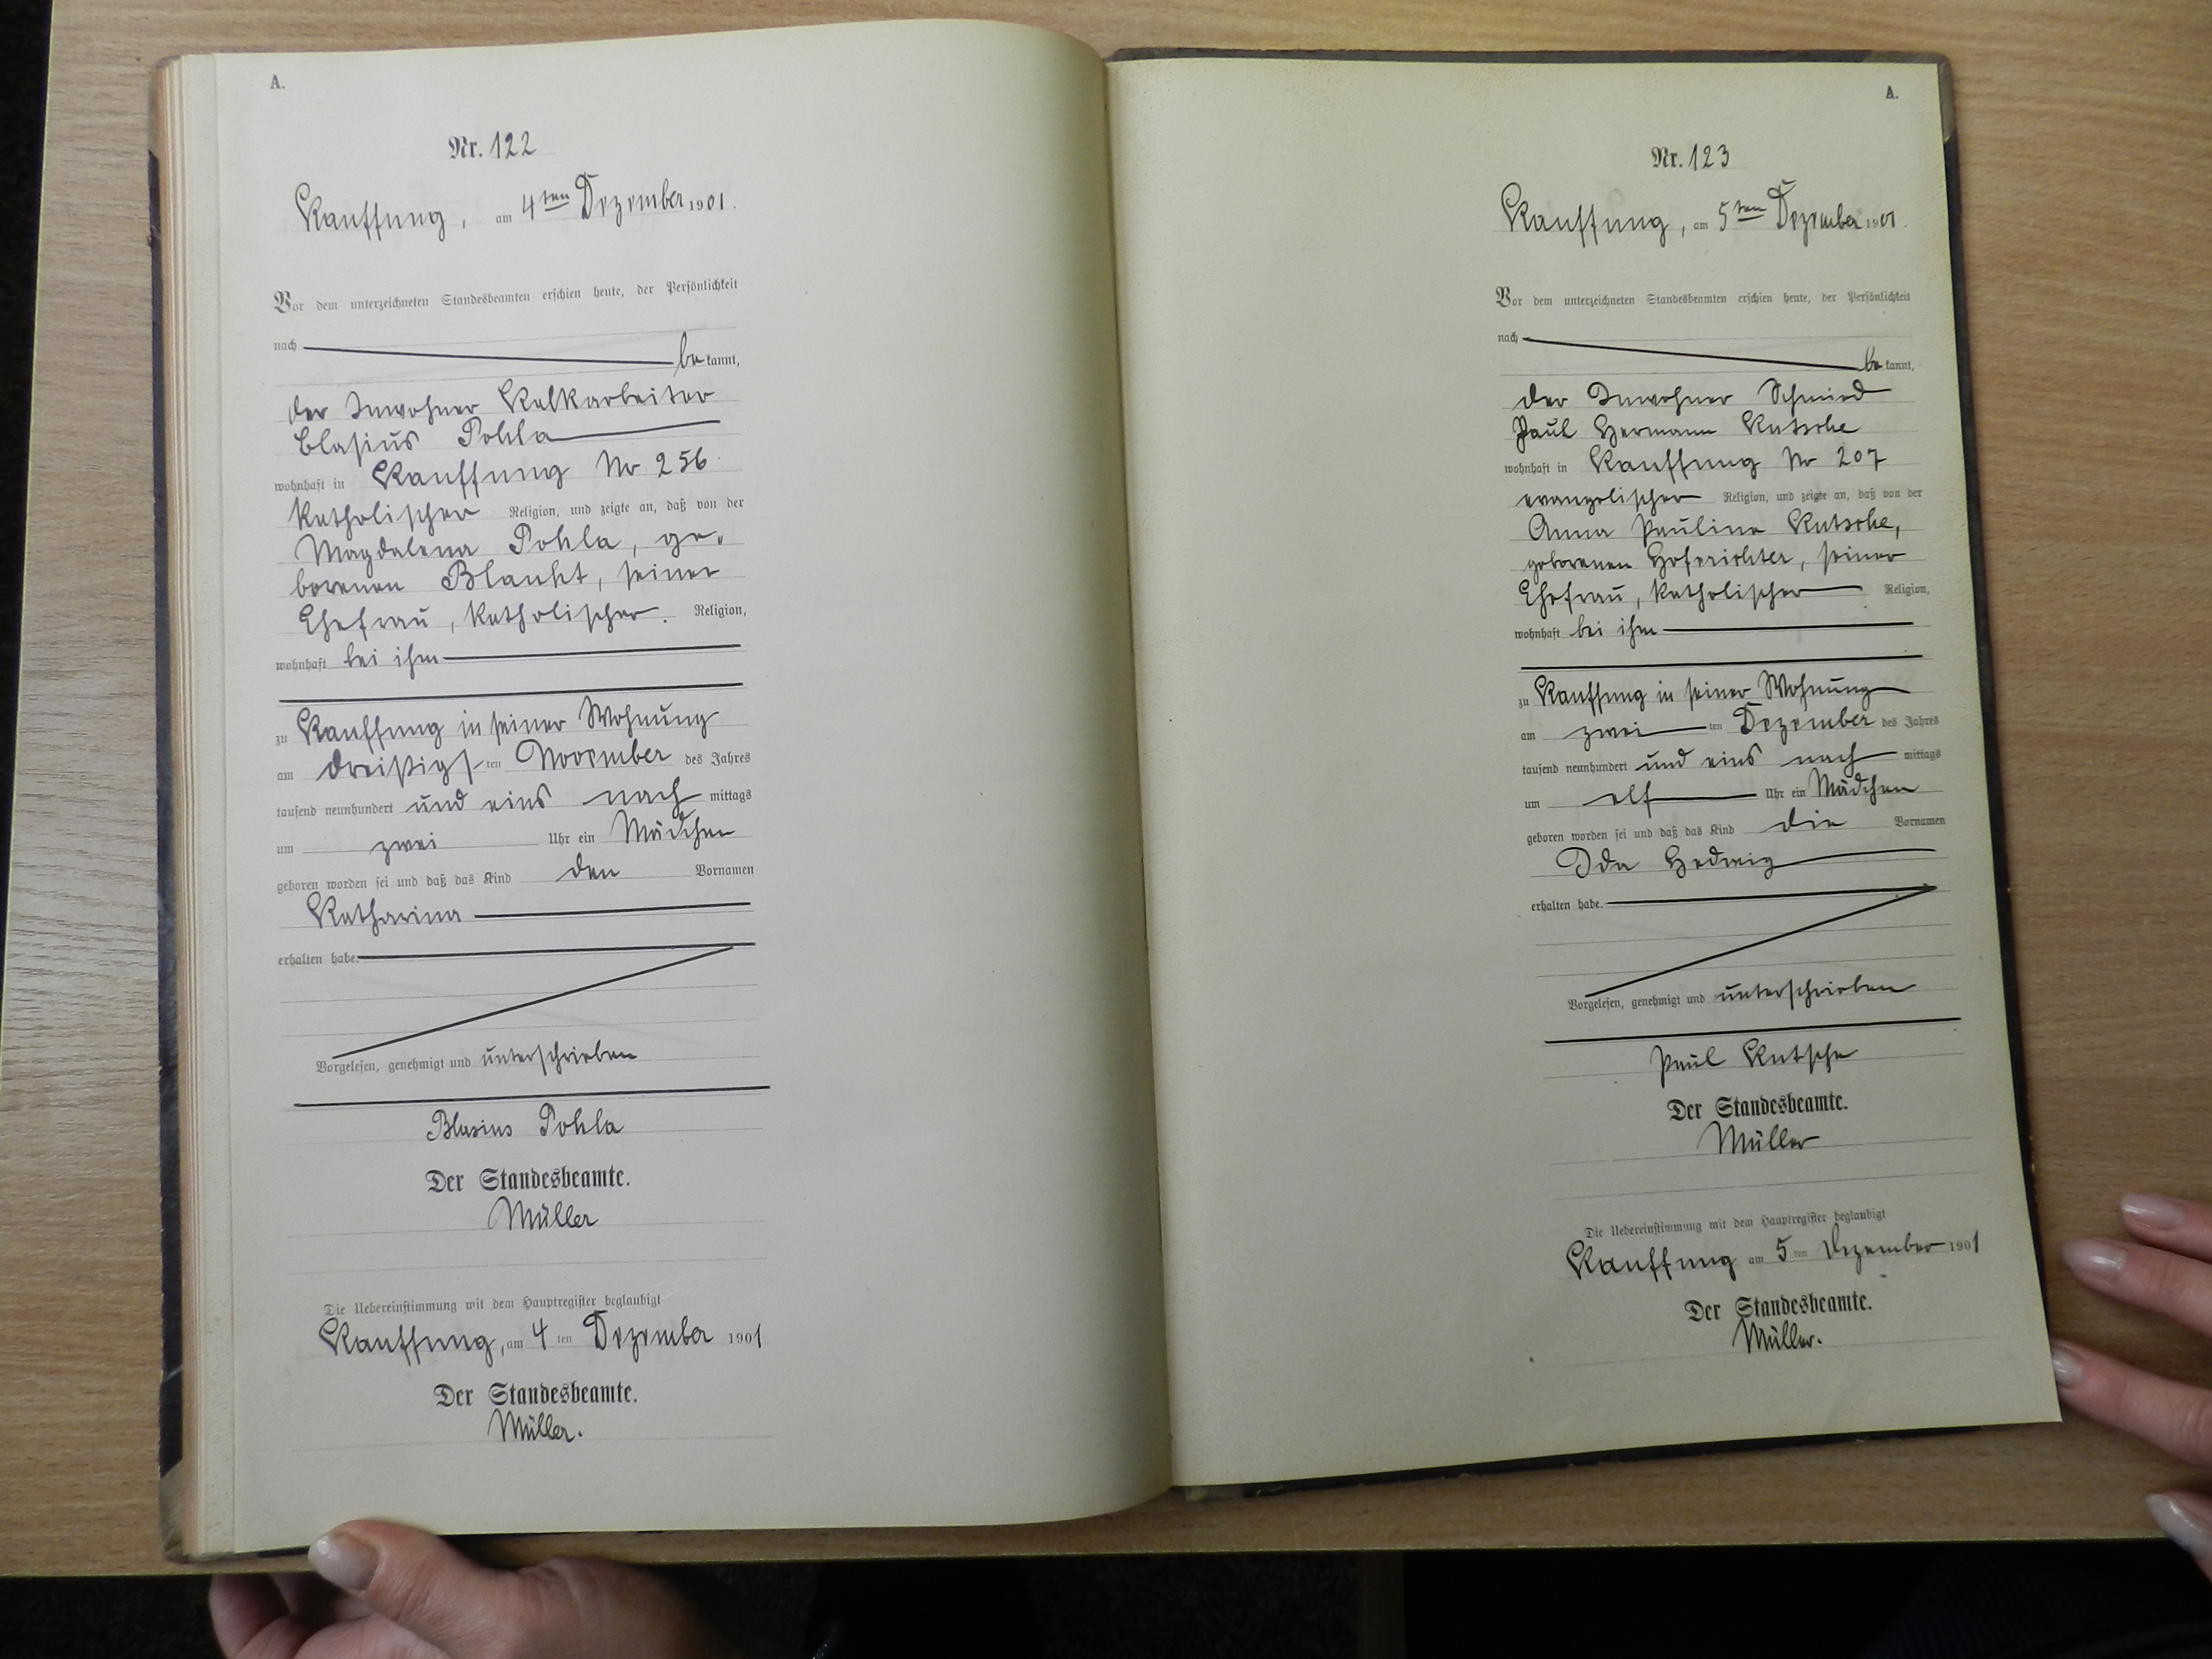 A.
Nr. 122
Kauffung, am 4ten Dezember 1901.
Vor dem unterzeichneten Standesbeamten erschien heute, der Persönlichkeit
nach bekannt,
der Inwohner Kalkarbeiter
Blasius Pohla
wohnhaft in Kauffung No 256
katholischer Religion, und zeigte an, daß von der
Magdalena Pohla, ge-
borenen Blankt, seiner
Ehefrau, katholischer. Religion,
wohnhaft bei ihm
zu Kauffung in seiner Wohnung
am dreißigsten November des Jahres
tausend neunhundert und eins nach mittags
um zwei Uhr ein Mädchen
geboren worden sei und daß das Kind den Vornamen
Katharina
erhalten habe.
Vorgelesen, genehmigt und unterschrieben
Blasius Pohla
Der Standesbeamte.
Müller
Die Uebereinstimmung mit dem Hauptregister beglaubigt
Kauffung, am 4 ten Dezember 1901
Der Standesbeamte.
Müller.
A.
Nr. 123
Kauffung, am 5ten Dezember 1901.
Vor dem unterzeichneten Standesbeamten erschien heute, der Persönlichkeit
nach bekannt,
der Inwohner Schmied
Paul Hermann Kutsche
wohnhaft in Kauffung No 207
evangelischer Religion, und zeigte an, daß von der
Anna Pauline Kutsche,
geborenen Hoferichter, seiner
Ehefrau, katholischer Religion,
wohnhaft bei ihm
zu Kauffung in seiner Wohnung
am zwei ten Dezember des Jahres
tausend neunhundert und eins nach mittags
um elf Uhr ein Mädchen
geboren worden sei und daß das Kind die Vornamen
Ida Hedwig
erhalten habe.
Vorgelesen, genehmigt und unterschrieben
Paul Kutsche
Der Standesbeamte.
Müller
Die Uebereinstimmung mit dem Hauptregister beglaubigt
Kauffung am 5 ten Dezember 1901
Der Standesbeamte.
Müller.